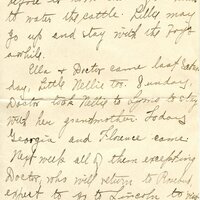 to water the cattle. Letters may
go up and stay with the boys
awhile.
Ella & Doctor came last Satur
day, Little Nellie too. Sunday,
Doctor took Nellie to Lyons to stay
with her grandmother. Today
Georgia and Florence came.
Next week all of them excepting
Doctor, who will return to
expect to go to Lincoln to